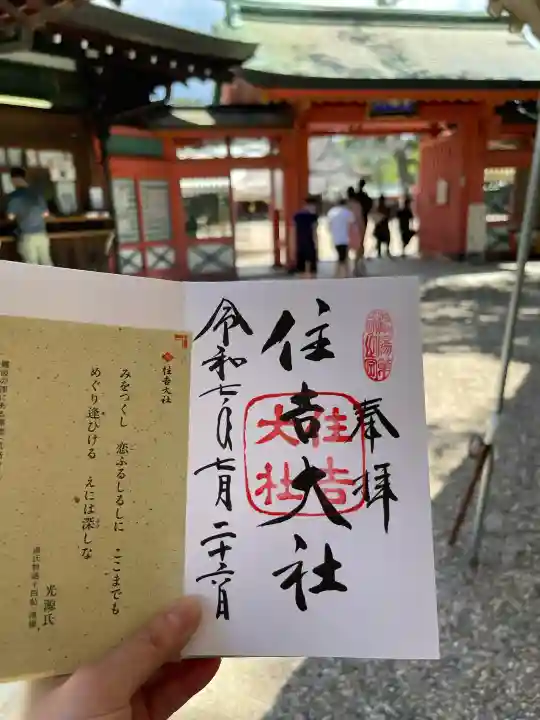 奉拝
住吉大社
住吉
大社
令和七年七月二十六日
住吉大社
みをつくし 恋ふるしるしに ここまでも
めぐり逢ひける えには深しな
光源氏
源氏物語十四帖 澪標